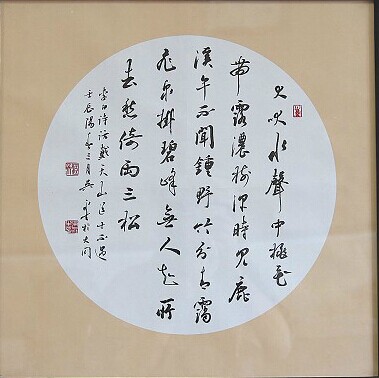 犬吠水聲中桃花
帶露濃樹深時見鹿
溪午不聞鍾野竹分青靄
飛泉掛碧峰無人知所
去愁倚兩三松
李白詩訪戴天山道士不遇
壬辰陽春三月於大同